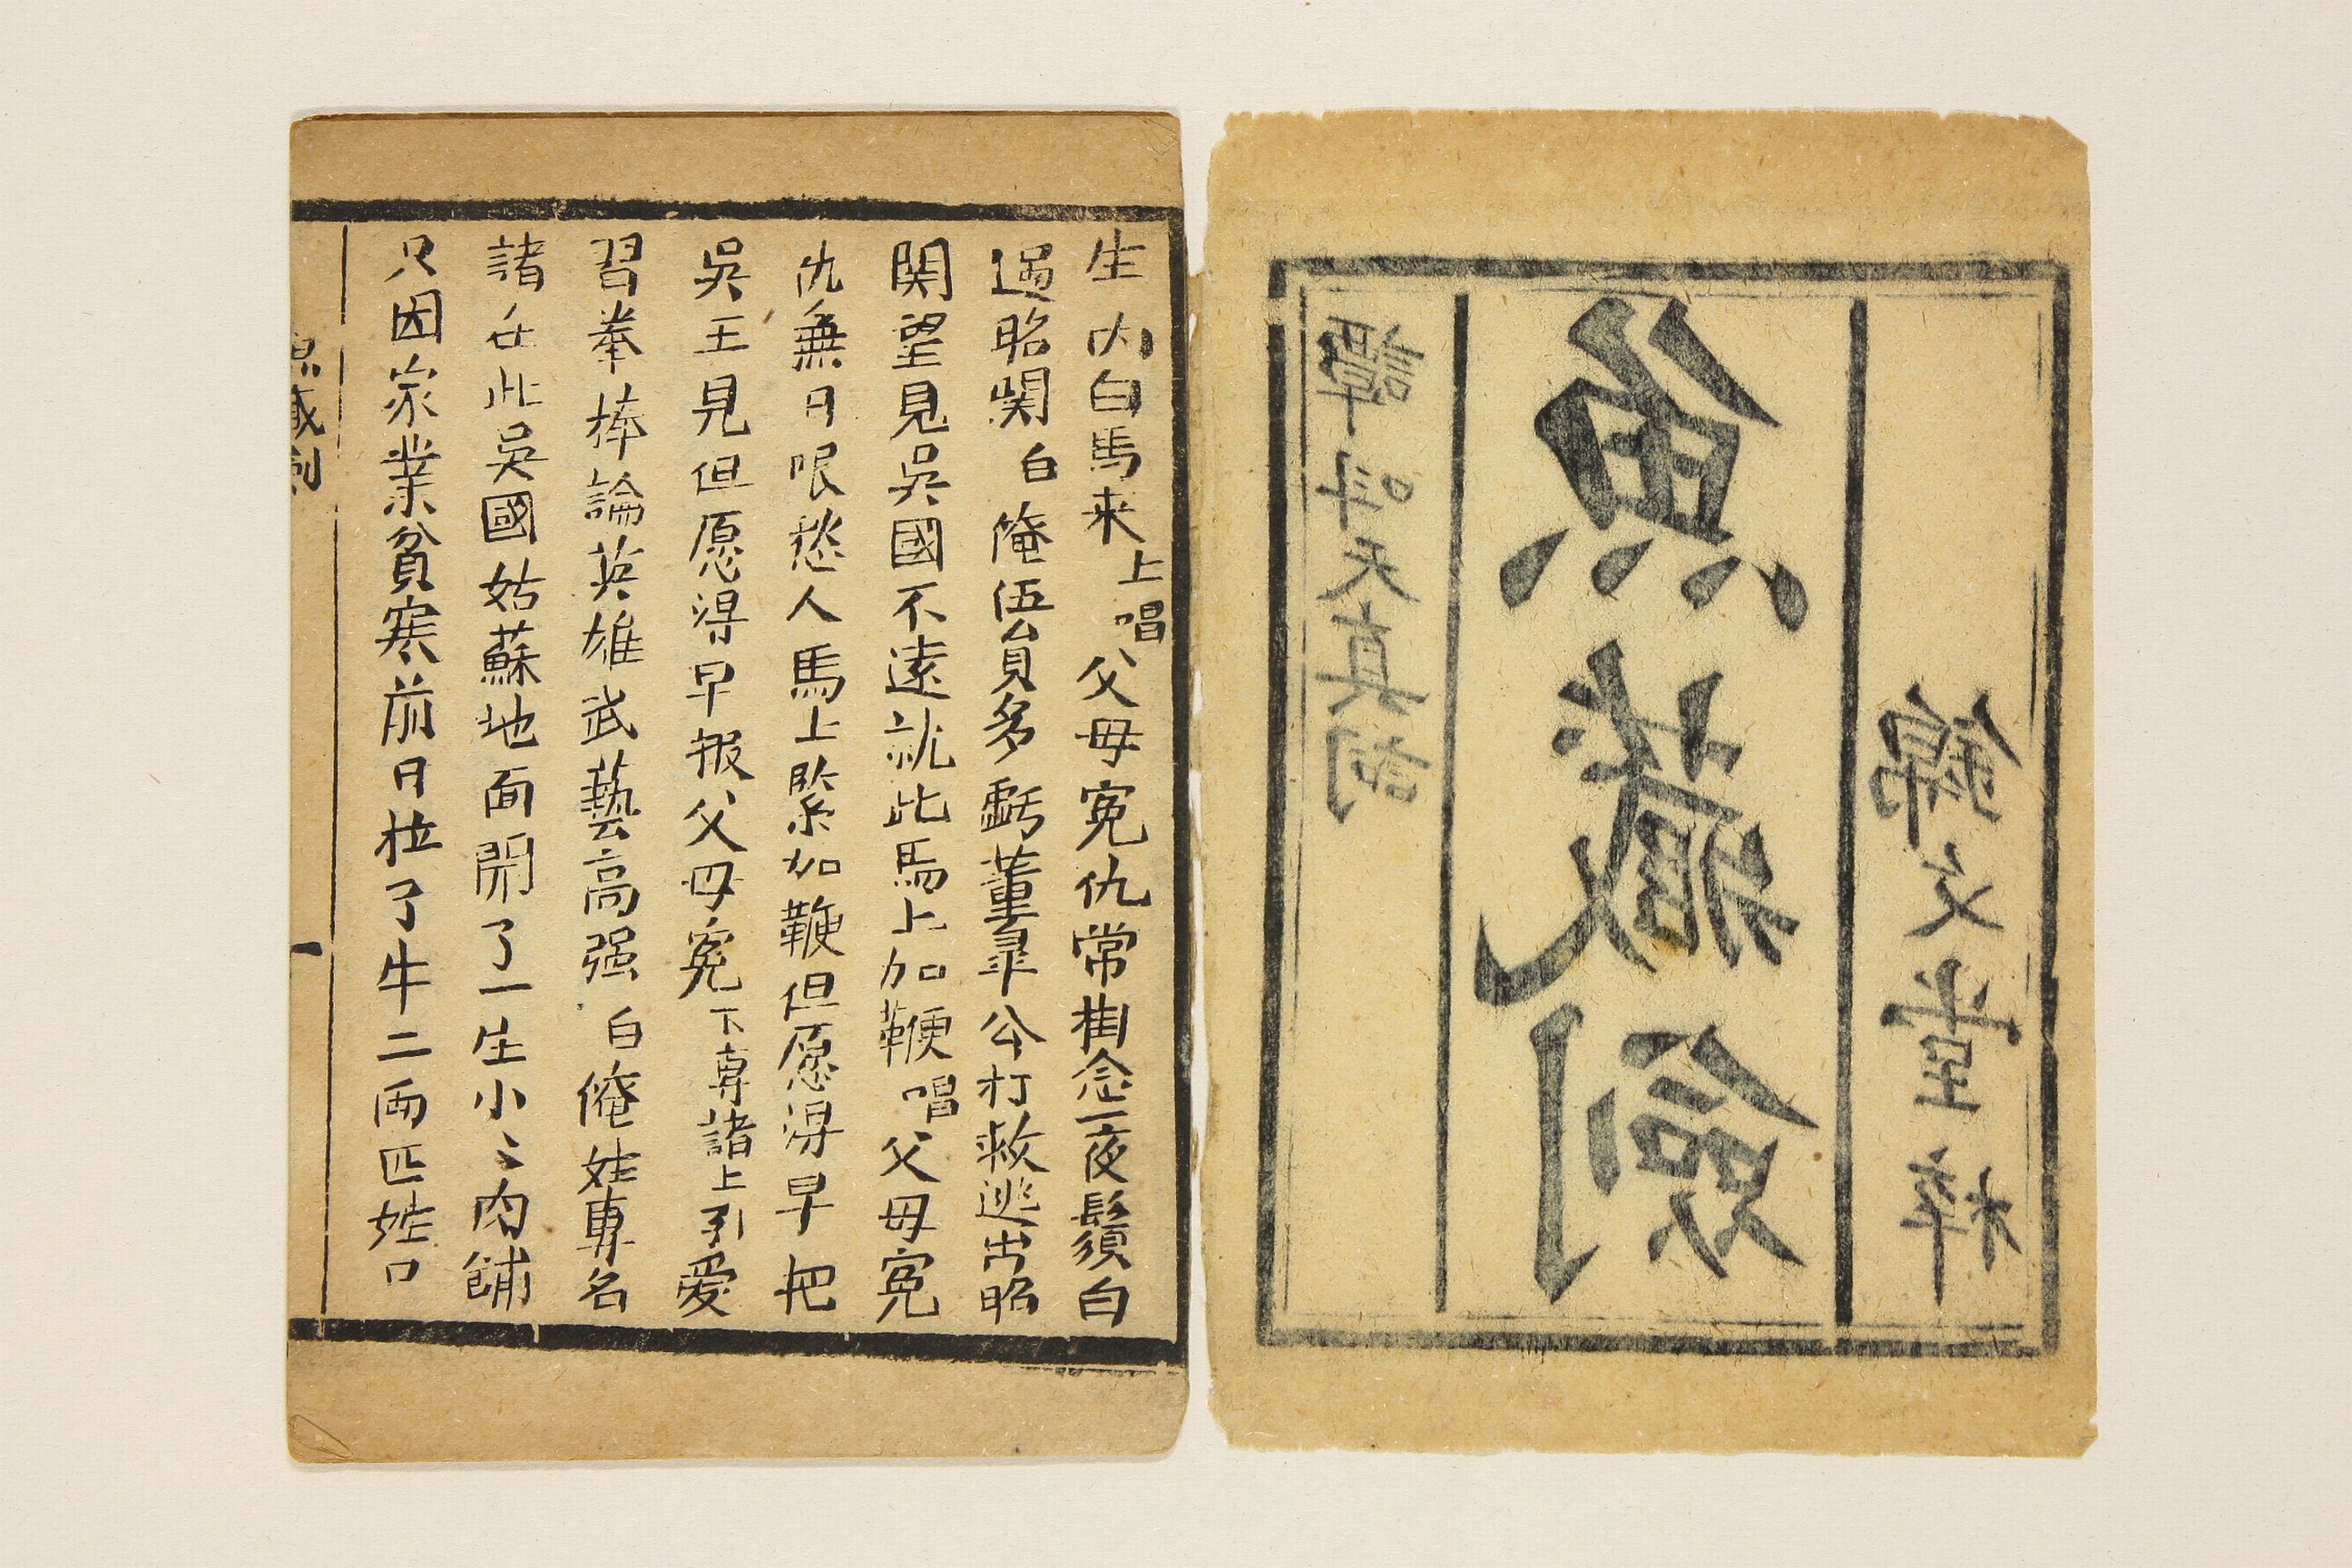 錦文堂梓
魚藏劍
譚叫天真詞
生内白馬来上唱父母寃仇常掛念一夜鬚白
過昭関白俺伍員多虧董皋公打救逃出昭
関望見吳國不遠就此馬上加鞭唱父母寃
仇無日哏愁人馬上緊加鞭但愿淂早把
吳王見但愿淂早报父母寃下專諸上引愛
習拳棒論英雄武藝高强白俺姓專名
諸在此吳國姑蘇地面開了一生小〻肉舖
只因家業貧寒前日拉了牛二兩匹姓口
魚藏劍
一